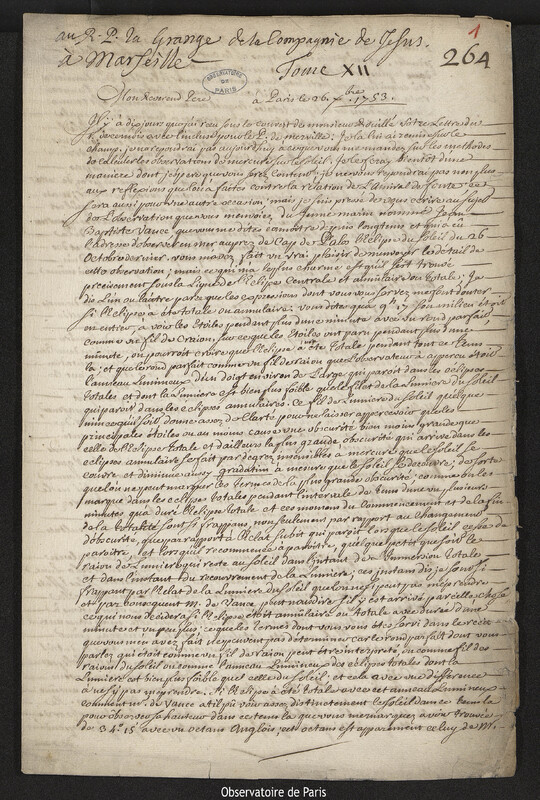 au R. P. la Grange de la Compagnie de Jesus.
à Marseille
1
264
Tome XII
OBSERVATOIRE DE PARIS
Mon Reverend Pere à Paris le 26 Xbre 1753.
Il y a dix jours que j'ai reçu sous le couvert de monsieur Rouillé votre Lettre du
avec l'incluse pour le P. de merville; Je la lui ai remise sur le
champ. je ne repondrai pas aujourd'huy a ce que vous me mandez sur les methodes
de calculer les observations de mercure sur le soleil. Je le feray bientôt d'une
maniere dont j'espere que vous serés content; je ne vous repondrai pas non plus
aux reflexions que l'on a faites contre la relation de l'Amiral de fonte ce
sera aussi pour une autre occasion; mais je suis pressé de vous écrire au sujet
de l'observation que vous m'envoiez, du Jeune marin nommé Jean
Baptiste Vance que vous me dites connoitre depuis longtems et qui a eu
l'adresse d'observer en mer auprez du Cap de Palos l'Eclipse du soleil du 26
Octobre dernier. vous m'avez fait un vrai plaisir de m'envoyer le détail de
cette observation; mais ce qui m'a le plus charmé est qu'il s'est trouvé
precisement sous la Ligne de l'Eclipse Centrale et annulaire ou totale; Je
dis l'un ou l'autre parce que les expressions dont vous vous servez me font douter
si l'Eclipse a été totale ou annulaire: vous dites que Mr V. son milieu
en entier, a vû les Etoiles pendant plus d'une minute avec un rond parfait
comme un fil de Craion, sur ce que les Etoiles ont paru pendant plus d'une
minute, on pourroit croire que l'Eclipse a été totale pendant tout ce tems
là; et que le rond parfait comme un fil de raion que l'observateur a apperçu étoit
l'anneau Lumineux d'un doigt environ de large qui paroit dans les eclipses
totales et dont la Lumiere est bien plus foible que le filet de la Lumiere du soleil
qui paroit dans les eclipses annulaires. Ce fil de Lumiere du soleil quelque
mince qu'il soit donne assez de Clarté pour ne laisser appercevoir que les
principales étoiles ou au moins cause une obscurité bien moins grande que
celle de l'Eclipse totale et d'ailleurs la plus grande obscurité qui arrive dans les
eclipses annulaires se fait par degrez insensibles a mesure que le soleil se
couvre et diminue aussy gradatim à mesure que le soleil se decouvre; de sorte
que l'on ne peut marquer les termes de la plus grande obscurité; comme on les
marque dans les eclipses totales pendant l'intervale de tems d'une ou plusieurs
minutes qu'a duré l'Eclipse totale et ces momens du Commencement et de la fin
de la totalité sont si frappans, non seulement par rapport au changement
d'obscurité, que par rapport à l'Eclat subit qui paroit lorsque le soleil cesse de
paroitre, et lorsqu'il recommence a paroitre, quelque petit que soit le
raion de Lumiere qui reste au soleil dans l'instant de l'Immersion totale
et dans l'instant du recouvrement de la Lumiere; ces instans dis je sont si
frappans par l'Eclat de la Lumiere du soleil que l'on ne s'y peut pas meprendre
et par consequent M. de Vance peut nous dire s'il y est arrivé pareille chose
ce qui nous decidera si l'Eclipse étoit annulaire ou totale avec durée d'une
minute et un peu plus; ce que les termes dont vous vous êtes servi dans le recit
que vous m'en avez fait ne peuvent pas determiner car le rond parfait dont vous
parlez qui était comme un fil de raion peut être interpreté, ou comme fil des
raions du soleil ou comme l'anneau Lumineux des eclipses totales dont la
Lumiere est bien plus foible que celle du soleil; et cela avec une difference
à ne s'y pas meprendre. Si l'Eclipse a été totale avec cet anneau Lumineux
comment Mr. de Vance a t-il pû voir assez distinctement le soleil dans ce tems là
pour observer sa hauteur dans ce tems là que vous me marquez avoir trouvée
de 34° 15' avec un octans Anglois; cet octans est apparement celuy de M.
Observatoire de Paris